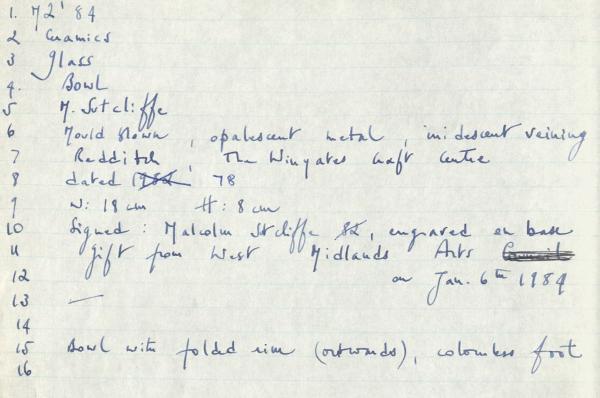 1. M2' 84
2 Ceramics
3 glass
4. Bowl
5 M. Sutcliffe
6 Mould blown, opalescent metal, iridescent veining
7 Redditch, The Winyates Craft Centre
8 dated 1982 78
9 W: 18 cm H: 8 cm
10 Signed: Malcolm Stcliffe 82, engraved on base
11 Gift from West Midlands Arts Council
12 on Jan. 6th 1984
13 —
14
15 Bowl with folded rim (outwards), colourless foot
16